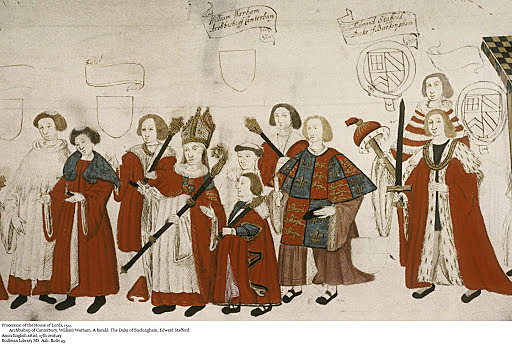 William Warham
Archbishop of Canterbury
Edward Stafford
Duke of Buckingham
Procession of the House of Lords, 1512.
Archbishop of Canterbury, William Warham. A herald. The Duke of Buckingham, Edward Stafford.
Anon English artist, 17th century
Bodleian Library MS. Ash. Rolls 45.